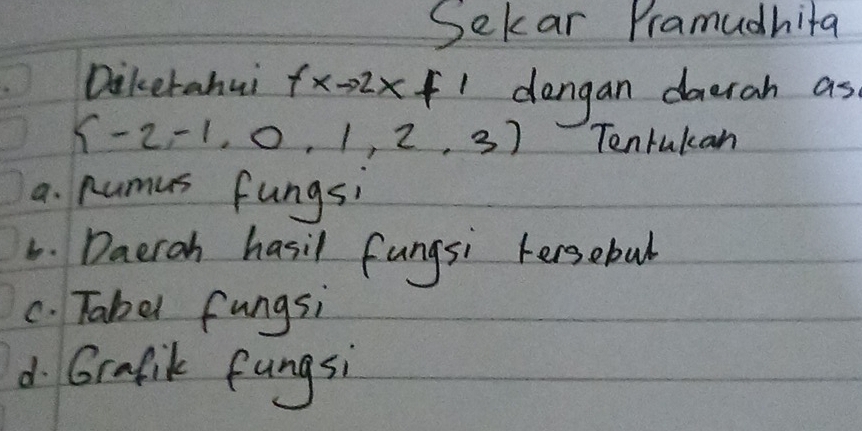 Sekar Pramudhita
Diketahui fx→2x + 1 dengan daerah as
{-2,-1, 0, 1, 2, 3} Tentukan
a. Rumus fungsi
b. Daerah hasil fungsi tersebut
c. Tabel fungsi
d. Grafik fungsi